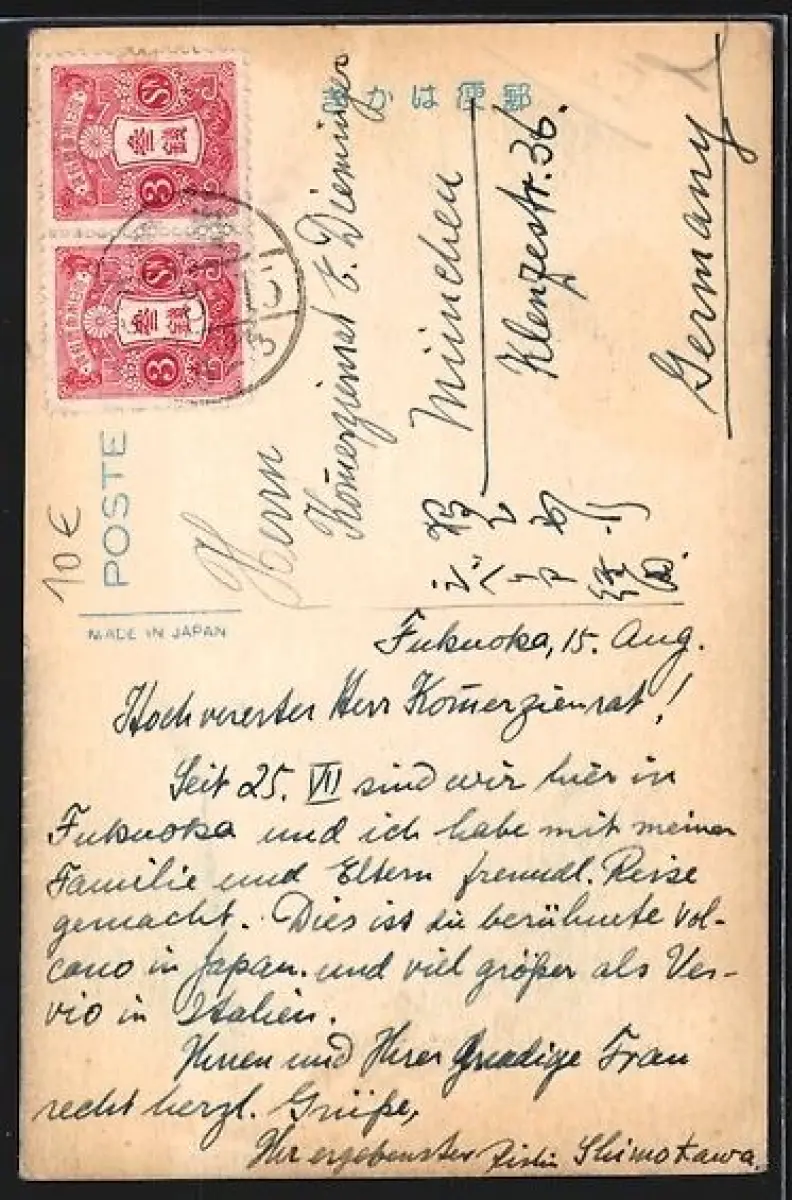 郵便はかき
POSTE
MADE IN JAPAN
大日本帝國郵便
参銭
3 Sn
大日本帝國郵便
参銭
3 Sn
10€
Herrn
Komerzienrat E. Dieminger
München
Klenzestr. 36.
Germany
Fukuoka, 15. Aug.
Hochvererter Herr Komerzienrat!
Seit 25. VII sind wir hier in
Fukuoka und ich habe mit meiner
Familie und Eltern freundl. Reise
gemacht. Dies ist die berühmte Vol-
cano in Japan. und viel größer als Ves-
vio in Italien.
Ihnen und Ihrer Gnadige Frau
recht herzl. Grüße,
Ihr ergebenster Shimokawa.